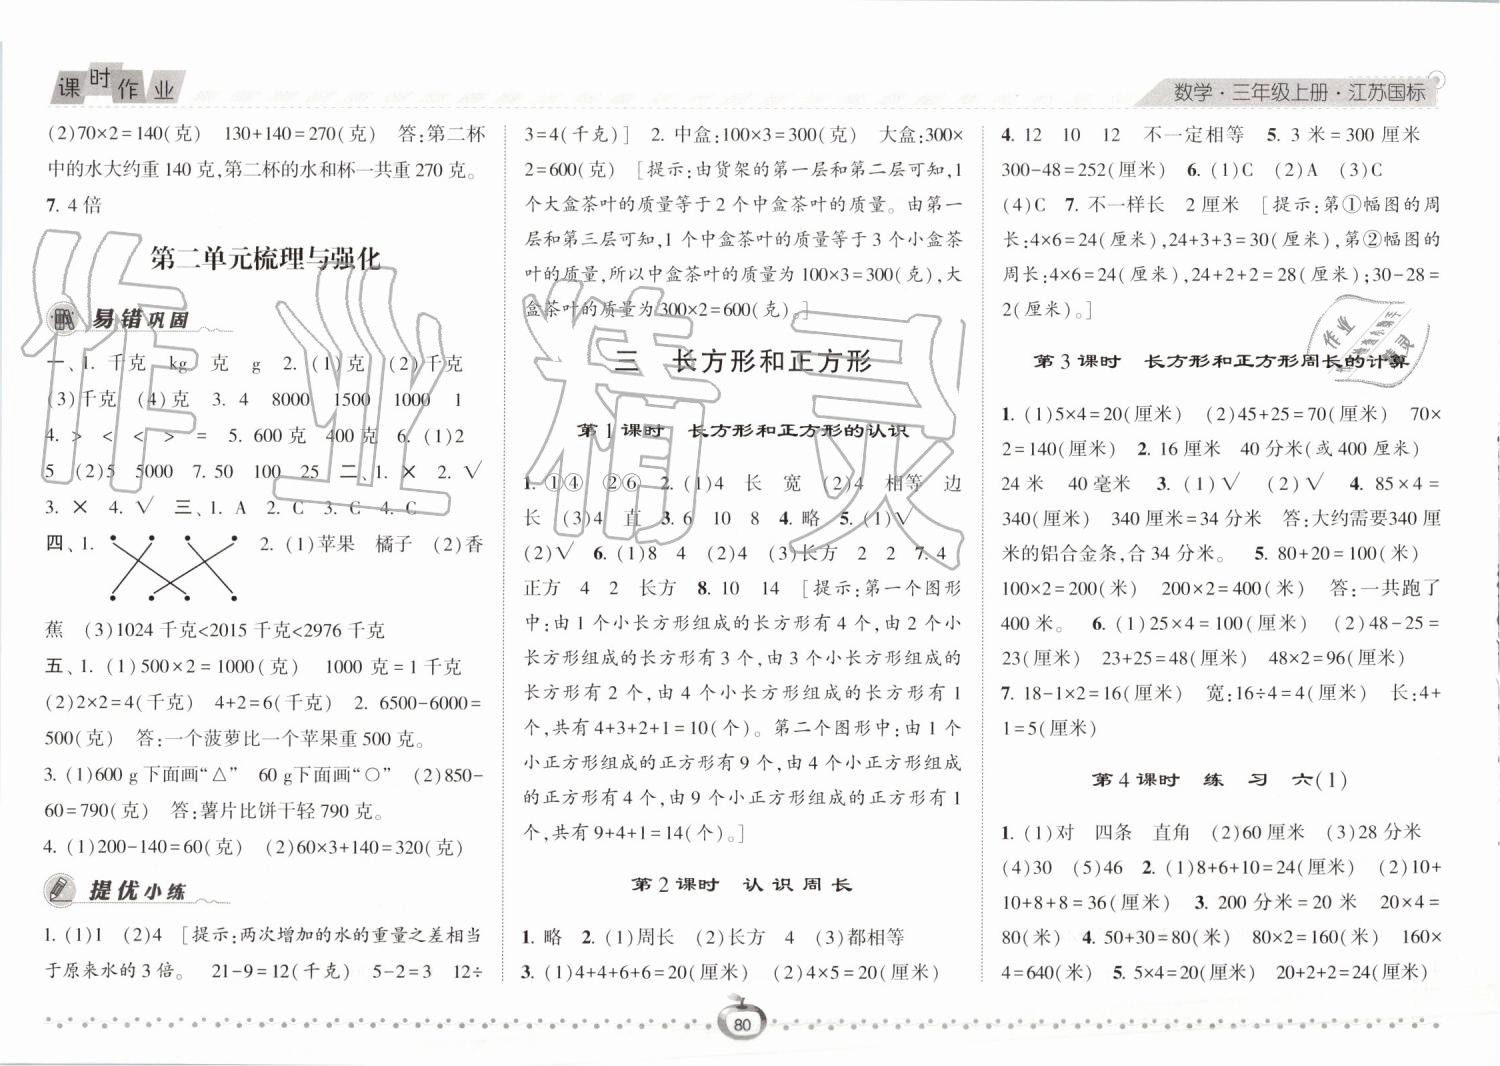 课时作业
数学·三年级上册·江苏国标
(2)70×2=140(克)　130+140=270(克)　答:第二杯
中的水大约重 140 克,第二杯的水和杯一共重 270 克。
7. 4 倍
第二单元梳理与强化
易错巩固
一、1. 千克　kg　克　g　2. (1)克　(2)千克
(3)千克　(4)克　3. 4　8000　1500　1000　1
4. >　<　<　>　=　5. 600 克　400 克　6. (1)2
5　(2)5　5000　7. 50　100　25　二、1. ×　2. √
3. ×　4. √　三、1. A　2. C　3. C　4. C
四、1.　2. (1)苹果　橘子　(2)香
蕉　(3)1024 千克<2015 千克<2976 千克
五、1. (1)500×2=1000(克)　1000 克=1 千克
(2)2×2=4(千克)　4+2=6(千克)　2. 6500-6000=
500(克)　答:一个菠萝比一个苹果重 500 克。
3. (1)600 g 下面画“△”　60 g下面画“○”　(2)850-
60=790(克)　答:薯片比饼干轻 790 克。
4. (1)200-140=60(克)　(2)60×3+140=320(克)
提优小练
1. (1)1　(2)4　[提示:两次增加的水的重量之差相当
于原来水的 3 倍。　21-9=12(千克)　5-2=3　12÷
3=4(千克)]　2. 中盒:100×3=300(克)　大盒:300×
2=600(克)　[提示:由货架的第一层和第二层可知,1
个大盒茶叶的质量等于 2 个中盒茶叶的质量。由第一
层和第三层可知,1 个中盒茶叶的质量等于 3 个小盒茶
叶的质量,所以中盒茶叶的质量为 100×3=300(克),大
盒茶叶的质量为 300×2=600(克)。]
三　长方形和正方形
第 1 课时　长方形和正方形的认识
1. ①④　②⑥　2. (1)4　长　宽　(2)4　相等　边
长　(3)4　直　3. 6　10　8　4. 略　5. (1)√
(2)√　6. (1)8　4　(2)4　(3)长方　2　2　7. 4
正方　4　2　长方　8. 10　14　[提示:第一个图形
中:由 1 个小长方形组成的长方形有 4 个,由 2 个小
长方形组成的长方形有 3 个,由 3 个小长方形组成的
长方形有 2 个,由 4 个小长方形组成的长方形有 1
个,共有 4+3+2+1=10(个)。第二个图形中:由 1 个
小正方形组成的正方形有 9 个,由 4 个小正方形组成
的正方形有 4 个,由 9 个小正方形组成的正方形有 1
个,共有 9+4+1=14(个)。]
第 2 课时　认 识 周 长
1. 略　2. (1)周长　(2)长方　4　(3)都相等
3. (1)4+4+6+6=20(厘米)　(2)4×5=20(厘米)
4. 12　10　12　不一定相等　5. 3 米=300 厘米
300-48=252(厘米)　6. (1)C　(2)A　(3)C
(4)C　7. 不一样长　2 厘米　[提示:第①幅图的周
长:4×6=24(厘米),24+3+3=30(厘米),第②幅图的
周长:4×6=24(厘米),24+2+2=28(厘米);30-28=
2(厘米)。]
第 3 课时　长方形和正方形周长的计算
1. (1)5×4=20(厘米)　(2)45+25=70(厘米)　70×
2=140(厘米)　2. 16 厘米　40 分米(或 400 厘米)
24 米　40 毫米　3. (1)√　(2)√　4. 85×4=
340(厘米)　340 厘米=34 分米　答:大约需要340 厘
米的铝合金条,合 34 分米。　5. 80+20=100(米)
100×2=200(米)　200×2=400(米)　答:一共跑了
400 米。　6. (1)25×4=100(厘米)　(2)48-25=
23(厘米)　23+25=48(厘米)　48×2=96(厘米)
7. 18-1×2=16(厘米)　宽:16÷4=4(厘米)　长:4+
1=5(厘米)
第 4 课时　练　习　六(1)
1. (1)对　四条　直角　(2)60 厘米　(3)28 分米
(4)30　(5)46　2. (1)8+6+10=24(厘米)　(2)10+
10+8+8=36(厘米)　3. 200 分米=20 米　20×4=
80(米)　4. 50+30=80(米)　80×2=160(米)　160×
4=640(米)　5. 5×4=20(厘米)　20+2+2=24(厘米)
80
作业精灵